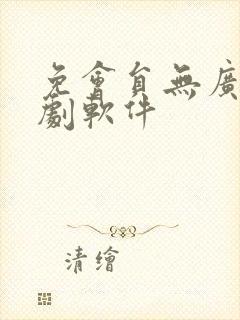 免會員無廣
劇軟件
清繪